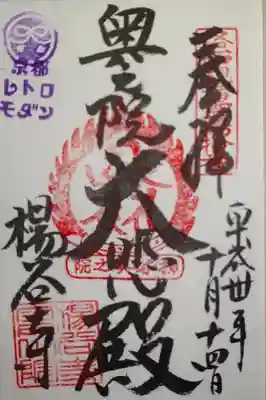 奉拝
平成卅年
十月十四日
奥之院
大悲殿
楊谷寺
京都
レトロ
モダン